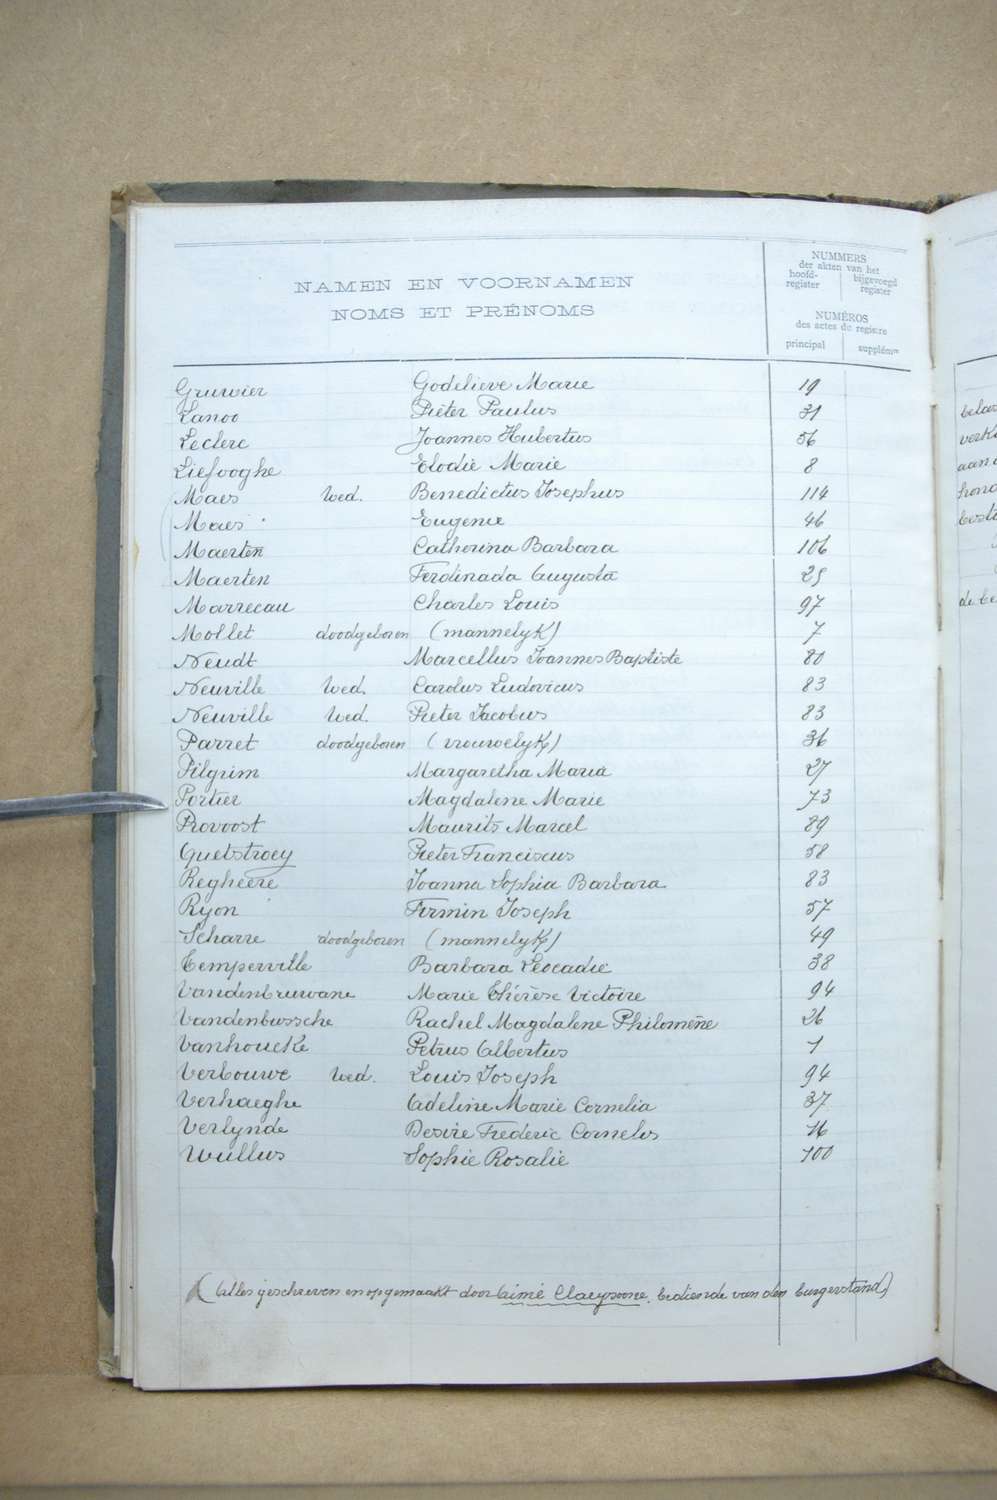 NAMEN EN VOORNAMEN
NOMS ET PRÉNOMS
NUMMERS
der akten van het
hoofd-register bijgevoegd register
NUMÉROS
des actes du registre
principal supplém^re
Gruwier Godelieve Marie 19
Lanoo Pieter Paulus 31
Leclerc Joannes Hubertus 56
Liefooghe Elodie Marie 8
Maes Wed. Benedictus Josephus 114
Maes Eugenie 46
Maerten Catherina Barbara 106
Maerten Ferdinada Augusta 25
Marrecau Charles Louis 97
Mollet doodgeboren (mannelyk) 7
Neudt Marcellus Joannes Baptiste 80
Neuville Wed. Carolus Ludovicus 83
Neuville Wed. Pieter Jacobus 83
Parret doodgeboren (vrouwelyk) 36
Pilgrim Margaretha Maria 27
Portier Magdalene Marie 73
Provoost Maurits Marcel 89
Quetstroey Pieter Franciscus 58
Regheere Joanna Sophia Barbara 83
Ryon Firmin Joseph 57
Scharre doodgeboren (mannelyk) 49
Temperville Barbara Leocadie 38
Vandenbruwane Marie Thérèse Victoire 94
Vandenbussche Rachel Magdalene Philomène 26
Vanhoucke Petrus Albertus 1
Verbouwe Wed. Louis Joseph 94
Verhaeghe Adeline Marie Cornelia 37
Verlynde Desire Frederic Cornelis 16
Wullus Sophie Rosalie 100
(Alles geschreven en opgemaakt door Aimé Claeysoone, bediende van den burgerstand)